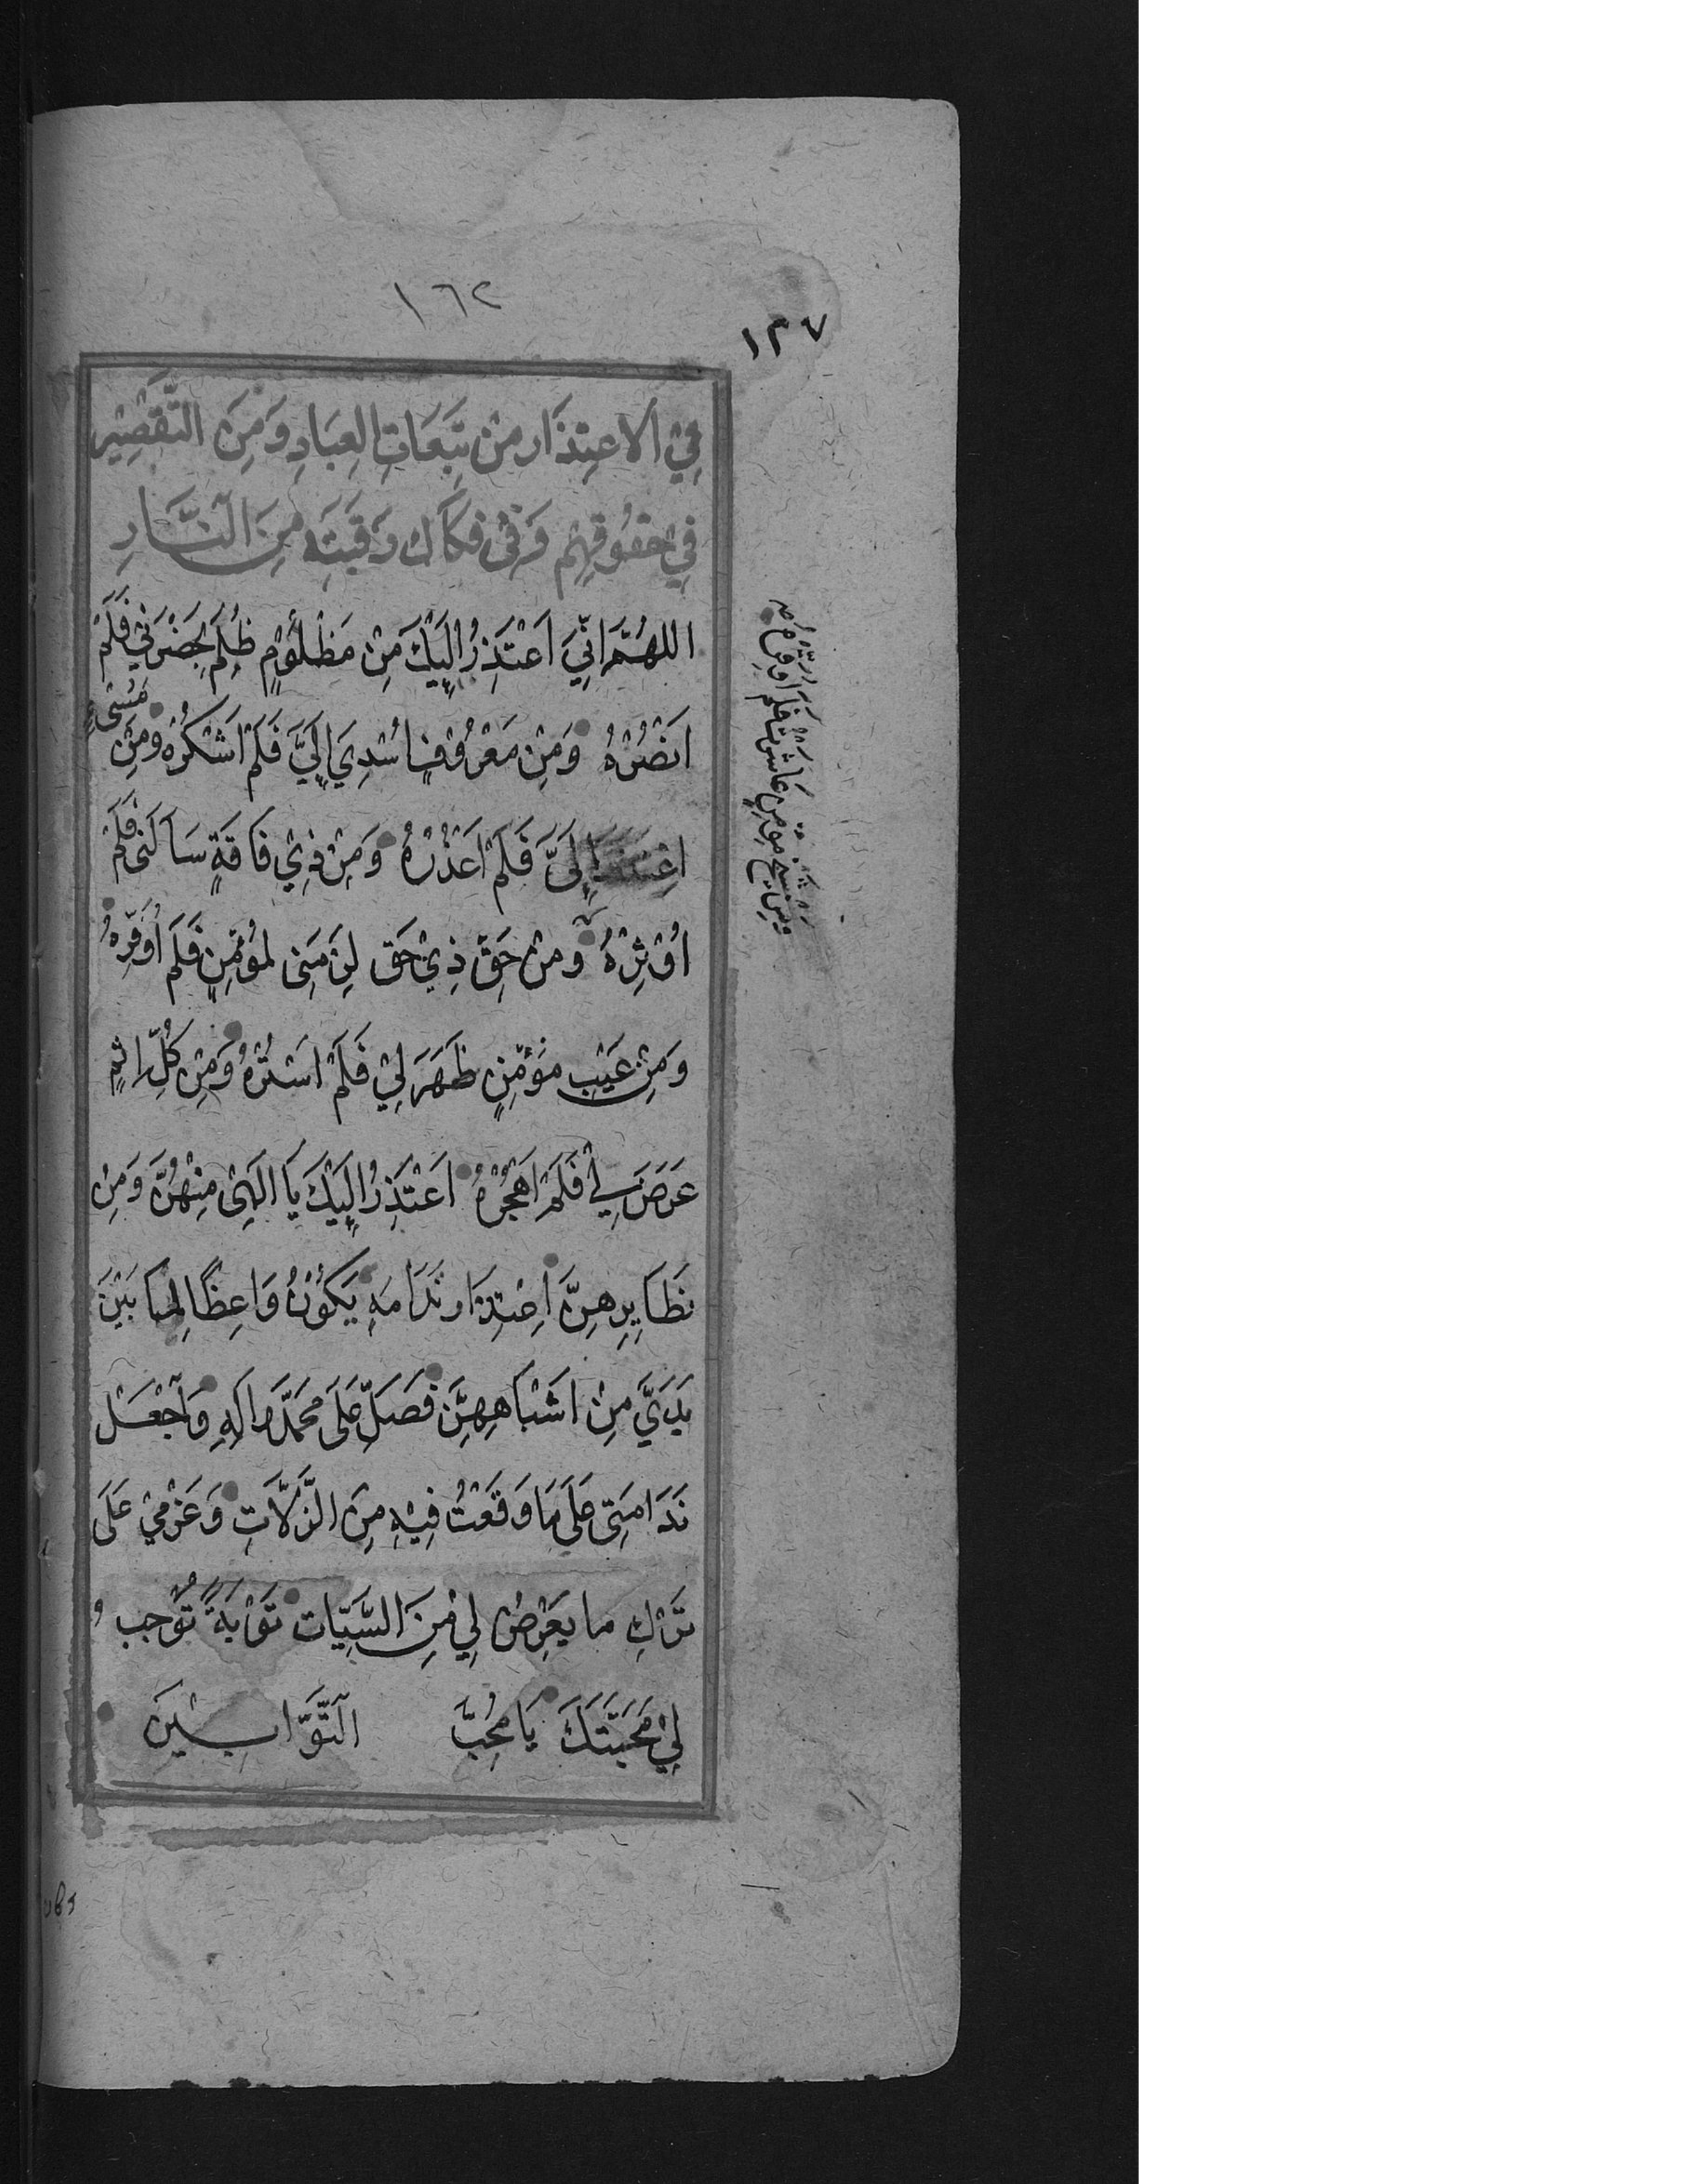 ١٦٢
١٣٧
فِي الاعتِذَار مِنْ تَبِعَاتِ العِبَادِ وَمِنَ التَّقْصِيْرِ
فِيْ حقُوقِهِم وَفي فكَاك رَقَبَتِهِ مِنَ النَّارِ
اللهُمَّ اِنِّيَ اَعْتَذِرُ اِلَيْكَ مِنْ مَظْلُوْمٍ ظُلِمَ بِحَضْرَتِيْ فَلَمْ
اَنْصُرْهُ وَمِنْ مَعْرُوْفٍ اُسْدِيَ اِلَيَّ فَلَمْ اَشْكُرْهُ وَمِنْ مُسِيْءٍ
اعْتَذَرَ اِلَىَّ فَلَمْ اَعْذُرْهُ وَمِنْ ذِيْ فَاقَةٍ سَاَلَنِى فَلَمْ
اُوْثِرْهُ وَمِنْ حَقِّ ذِيْ حَق لَزِمَنِى لِمُؤْمِنٍ فَلَم اُوَفِّرْهُ
وَمِنْ عَيْبِ مُؤْمِنٍ ظَهَرَ لِيْ فَلَمْ اَسْتُرْهُ وَمِنْ كُلِّ اثْمٍ
عَرَضَ لِيْ فَلَمْ اَهْجُرْهُ اَعْتَذِرُ اِلَيْكَ يَا اِلَهِىْ مِنْهُنَّ وَمِنْ
نَظَايِرِهِنَّ اِعْتِذَار نَدَامَهٍ يَكُوْنُ وَاعِظًا لِمَا بَيْنَ
يَدَيَّ مِنْ اَشْبَاهِهِنَّ فَصَلِّ عَلَى مُحَمَّدٍ وَالِهِ وَاجْعَلْ
نَدَامَتِى عَلَى مَا وَقَعْتُ فِيْهِ مِنَ الزَّلاَّتِ وَعَزْمِيْ عَلَى
تَرْكِ ما يَعْرِضُ لِي مِنَ السَّيِّاتِ تَوْبَةً تُوْجِب
لِيْ مَحَبَّتَكَ يَا مُحِبَّ التَّوَّابِيْنَ